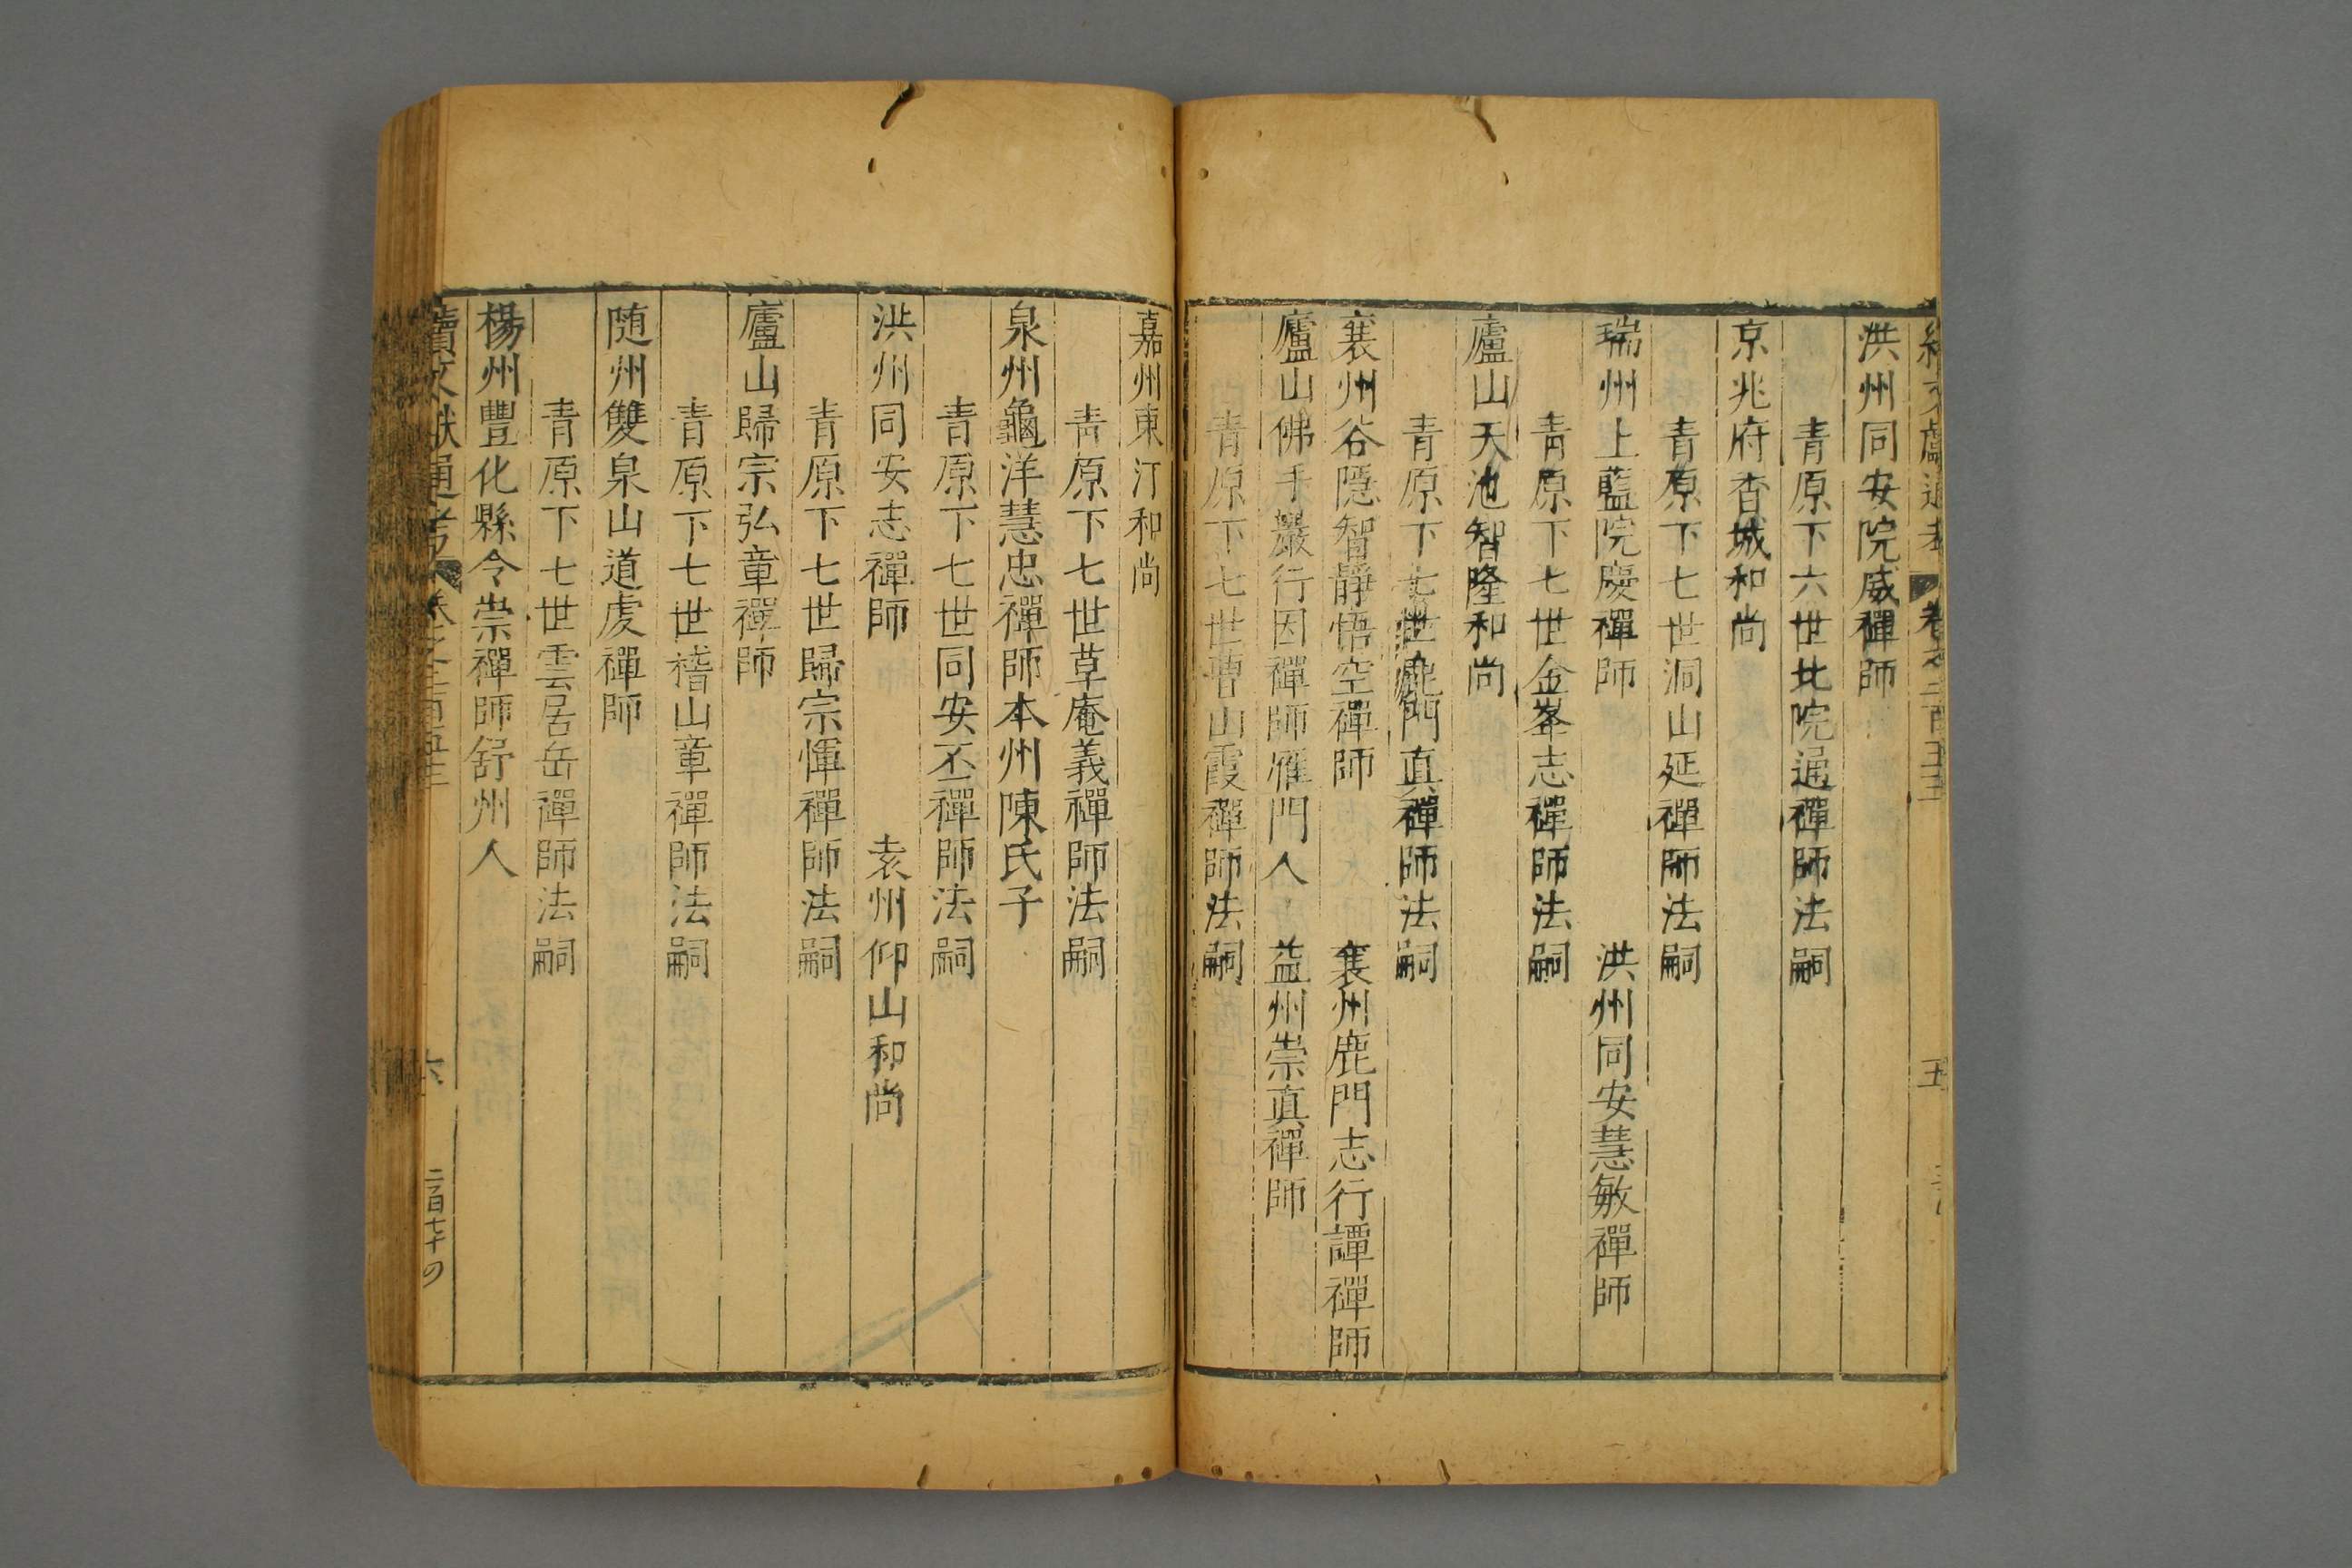 洪州同安院威禪師
青原下六世北院通禪師法嗣
京兆府杳城和尚
青原下七世洞山延禪師法嗣
瑞州上藍院慶禪師 洪州同安慧敏禪師
青原下七世金峯志禪師法嗣
廬山天池智隆和尚
青原下七世鹿門真禪師法嗣
襄州谷隱智靜悟空禪師 襄州鹿門志行譚禪師
廬山佛手巖行因禪師雁門人 益州崇真禪師
青原下七世曹山霞禪師法嗣
嘉州東汀和尚
青原下七世草庵義禪師法嗣
泉州龜洋慧忠禪師本州陳氏子
青原下七世同安丕禪師法嗣
洪州同安志禪師 袁州仰山和尚
青原下七世歸宗惲禪師法嗣
廬山歸宗弘章禪師
青原下七世嵇山章禪師法嗣
随州雙泉山道虔禪師
青原下七世雲居岳禪師法嗣
楊州豐化縣令崇禪師舒州人
續文献通考 卷之二百五十三 六
二百七十の